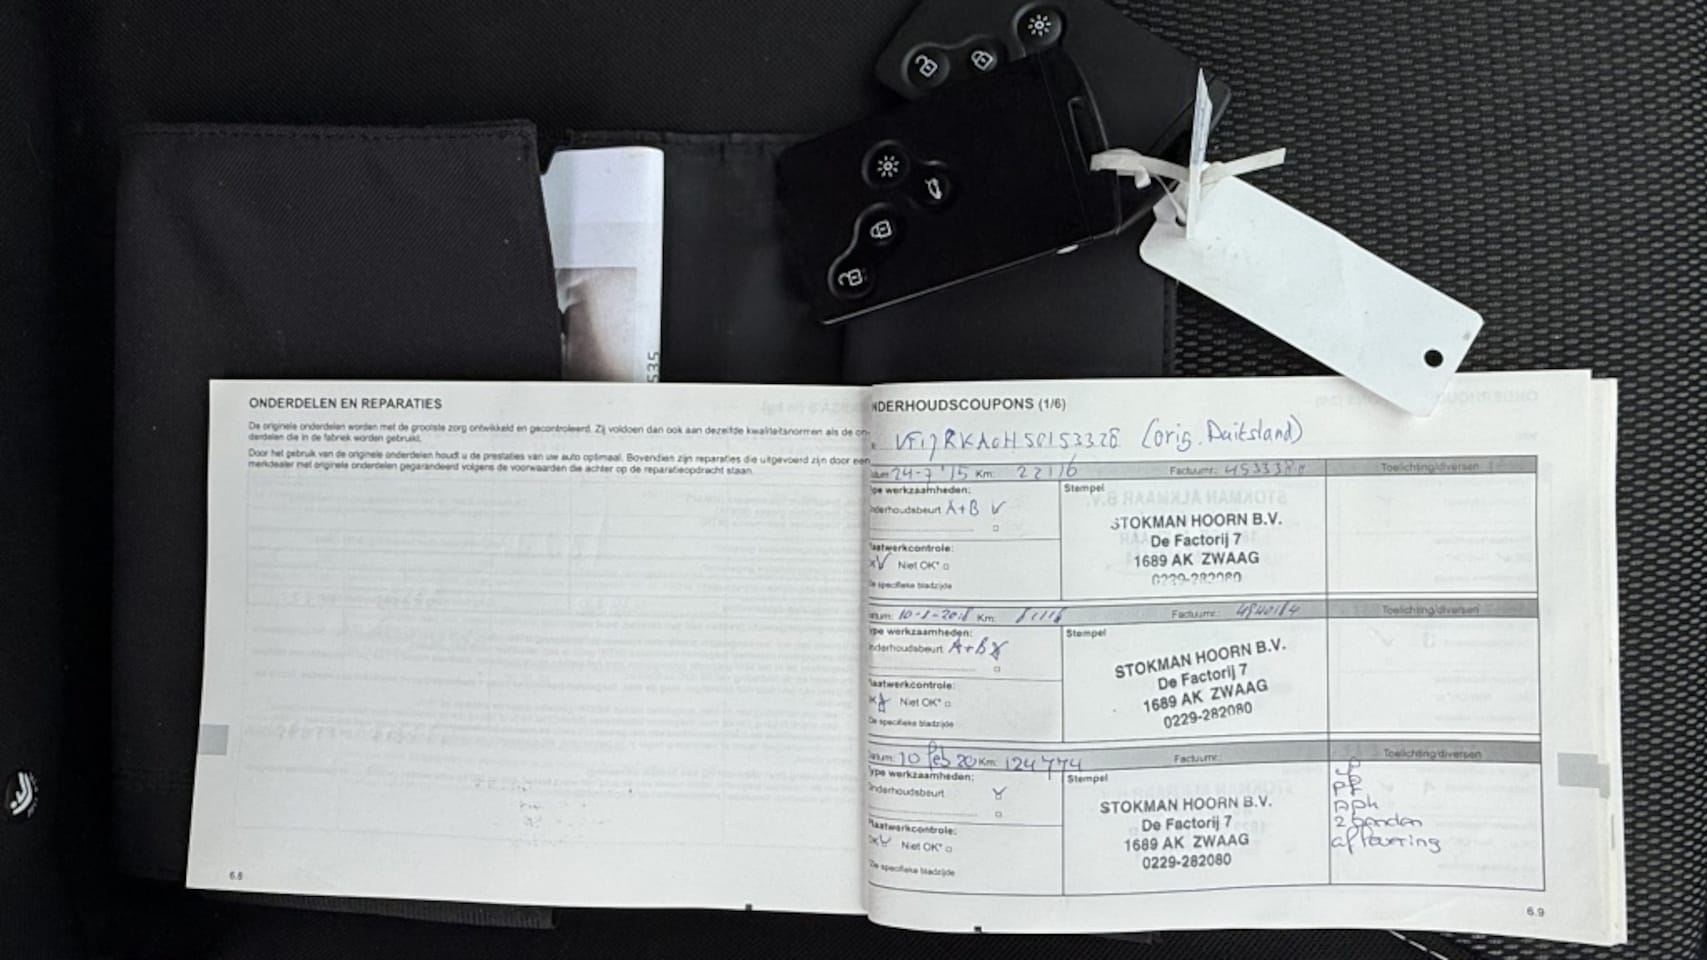 535
ONDERDELEN EN REPARATIES
De originele onderdelen worden met de grootste zorg ontwikkeld en gecontroleerd. Zij voldoen dan ook aan dezelfde kwaliteitsnormen als de on-
derdelen die in de fabriek worden gebruikt.
Door het gebruik van de originele onderdelen houdt u de prestaties van uw auto optimaal. Bovendien zijn reparaties die uitgevoerd zijn door een
merkdealer met originele onderdelen gegarandeerd volgens de voorwaarden die achter op de reparatieopdracht staan.
6.8
NDERHOUDSCOUPONS (1/6)
(orig. Duitsland)
24-7 '15 Km: 22116 Factuurnr.: Toelichting/diversen
pe werkzaamheden: Stempel
nderhoudsbeurt A+B
STOKMAN HOORN B.V.
De Factorij 7
1689 AK ZWAAG
0229-282080
laatwerkcontrole:
Niet OK*
De specifieke bladzijde
Km: Factuurnr.: Toelichting/diversen
ype werkzaamheden: Stempel
nderhoudsbeurt A+B
STOKMAN HOORN B.V.
De Factorij 7
1689 AK ZWAAG
0229-282080
laatwerkcontrole:
Niet OK*
De specifieke bladzijde
atum: 10 feb 20 Km: 124774 Factuurnr.: Toelichting/diversen
ype werkzaamheden: Stempel
nderhoudsbeurt
STOKMAN HOORN B.V.
De Factorij 7
1689 AK ZWAAG
0229-282080
PF
apk
2 banden
aflevering
laatwerkcontrole:
OK Niet OK*
Zie specifieke bladzijde
6.9